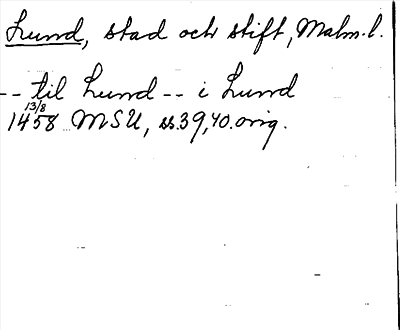 Lund, stad och stift, Malm.l.
-- til Lund -- i Lund
13/8
1458 MSU, ss.39,40.orig.